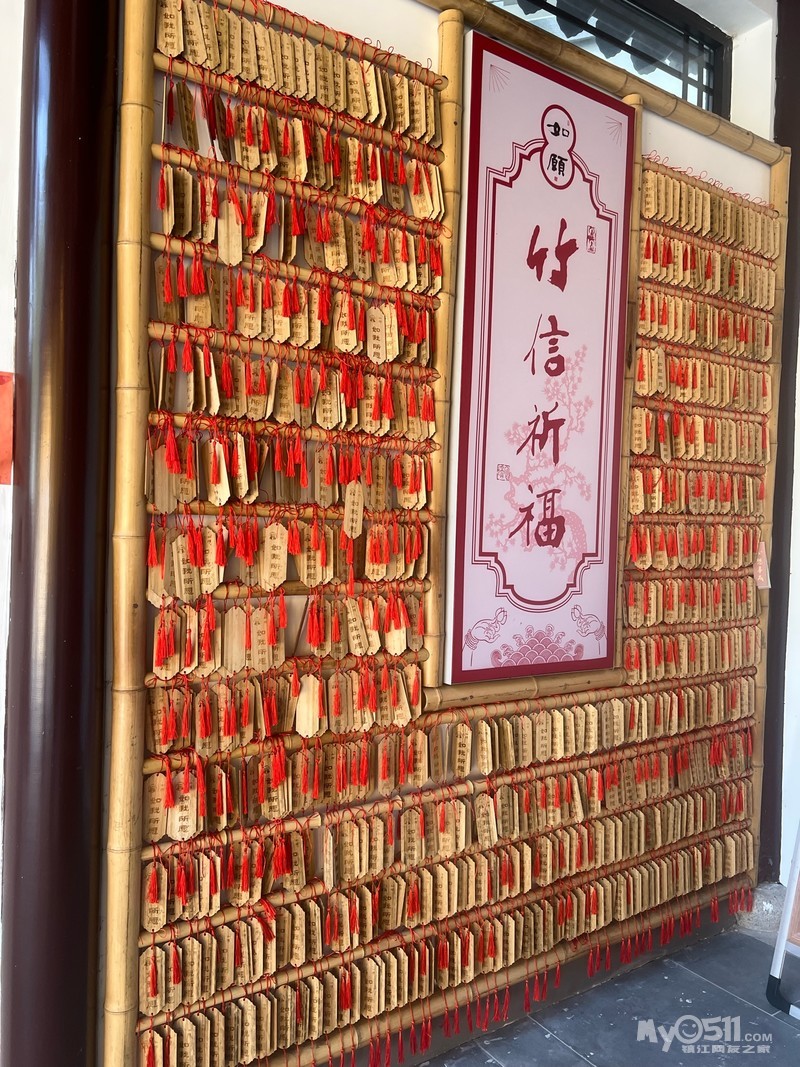 如
愿
竹
信
祈
福
如我所愿
My0511.COM
镇江网友之家